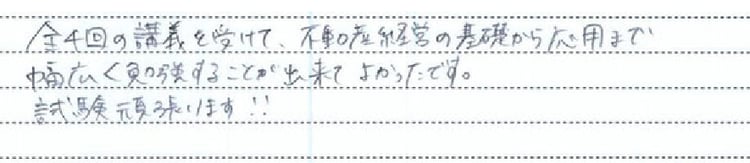 全4回の講義を受けて、不動産経営の基礎から応用まで
幅広く勉強することが出来てよかったです。
試験頑張ります!!